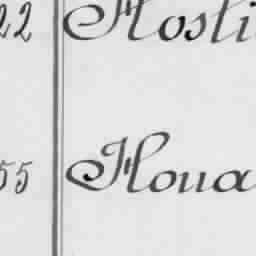 22 Hosti
55 Houa